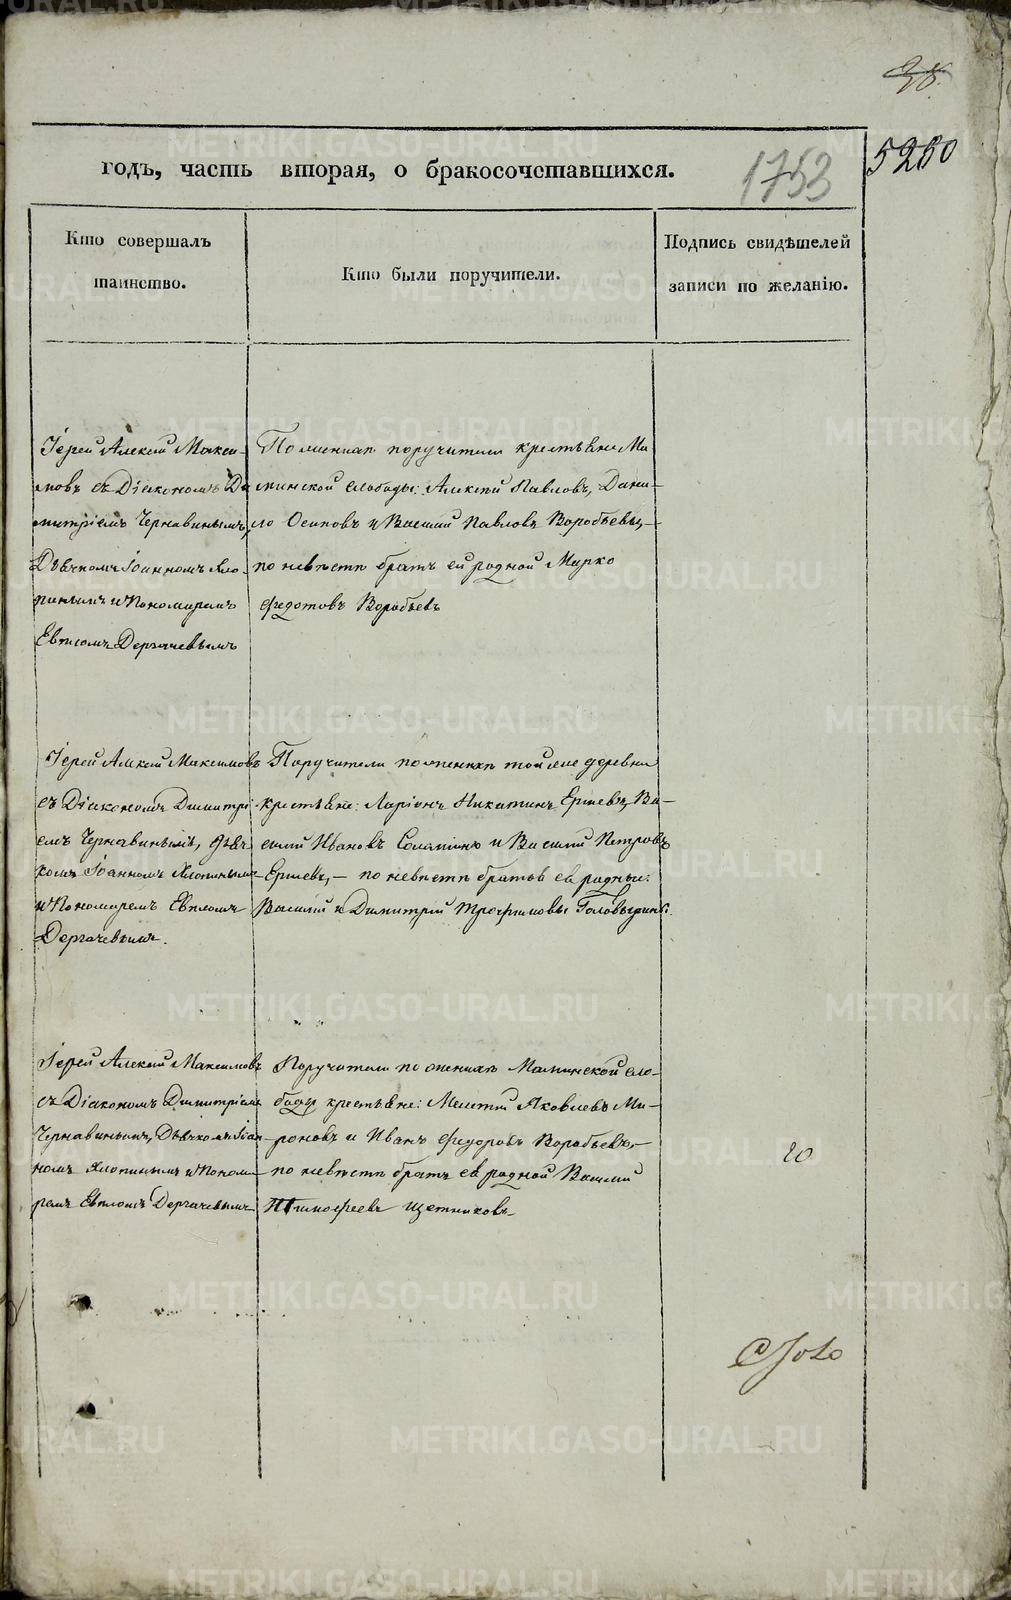 28.
5260
годъ, часть вторая, о бракосочетавшихся.
1753
Кто совершалъ
таинство.
Кто были поручители.
Подпись свидѣтелей
записи по желанію.
Іерей Алексій Макси-
мовъ съ Діакономъ Ди
митріемъ Чернавинымъ,
Дьячкомъ Іоанномъ Хло-
пинымъ и Пономаремъ
Евпломъ Дергачевымъ
По женихѣ поручители крестьяне Ма
минской слободы: Алексій Павловъ, Дани-
ло Осиповъ и Василій Павловъ Воробьевы,-
по невѣстѣ братъ ей родной Марко
Федотовъ Воробьевъ
Іерей Алексій Максимовъ
съ Діакономъ Димитрі
емъ Чернавинымъ, дьяч
комъ Іоанномъ Хлопинымъ
и Пономаремъ Евпломъ
Дергачевымъ.
Поручители по женихѣ той же деревни
крестьяне: Ларіонъ Никитинъ Ершевъ, Ва-
силій Ивановъ и Василій Петровъ
Ершевъ, - по невѣстѣ братья ея родные:
Василій и Димитрій Трофимовы
Іерей Алексій Максимовъ
съ Діакономъ Димитріемъ
Чернавинымъ, Дьячкомъ Іоан
номъ Хлопинымъ и Понома
ремъ Евпломъ Дергачевымъ
Поручители по женихѣ Маминской сло-
боды крестьяне: Мелетій Яковлевъ Ми-
роновъ и Иванъ Федоровъ Воробьевъ,-
по невѣстѣ братъ ея родной Василій
Тимофеевъ Щетниковъ.
20
METRIKI.GASO-URAL.RU